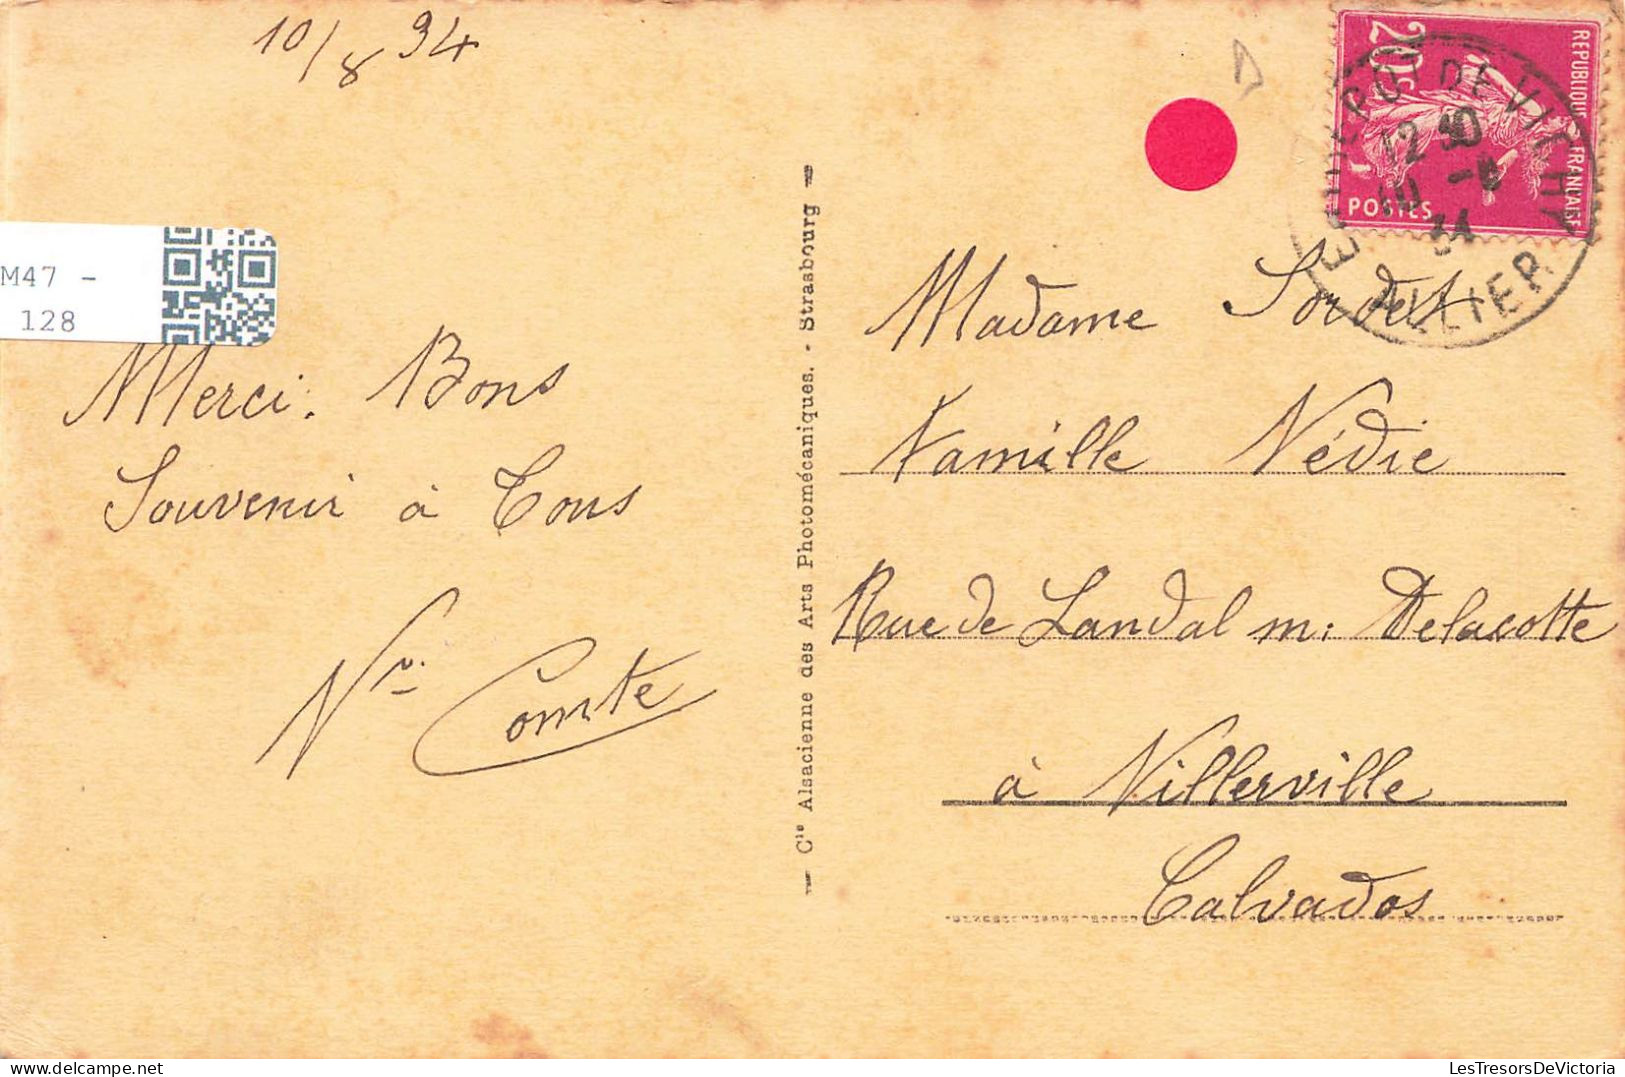 10/8 34
M47 -
128
Merci. Bons
Souvenir à Tous
Vve Comte
— Cie Alsacienne des Arts Photomécaniques. - Strasbourg —
20c
REPUBLIQUE FRANÇAISE
POSTES
DE VICHY
12 30
10 -8
34
ALLIER
Madame Sordet
Famille Védie
Rue de Landal m: Delacotte
à Villerville
Calvados
LesTresorsDeVictoria